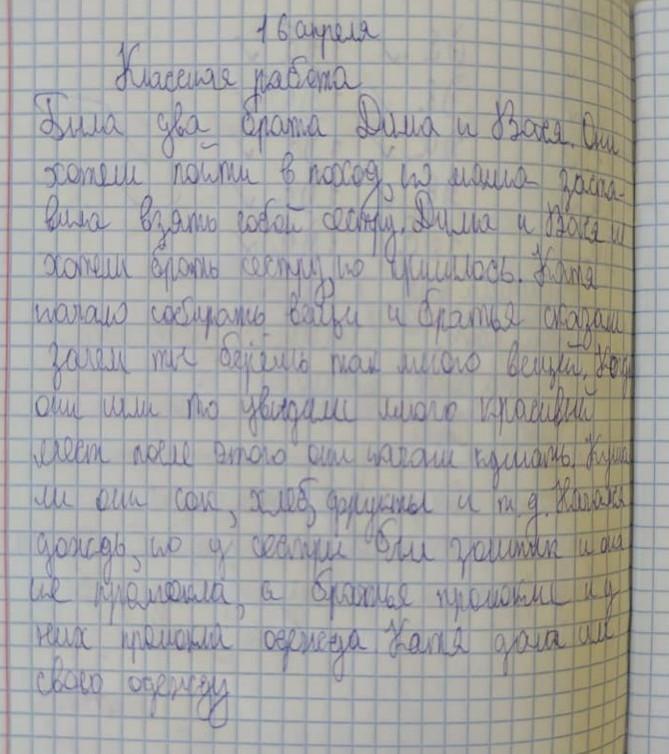 16 апреля
Классная работа
Била два брата Дима и Вася. Они
хотели пойти в поход, но мама заста-
вила взять собой сестру. Дима и Вася н
хотели брать сестру, но пришлось. Катя
начало собирать вещи и братья сказали
зачем ты берёшь так много вещей. Когд
они шли то увидели много красивый
мест после этого они начали кушать. Куша
ли они сок, хлеб, фрукты и т.д. Начался
дождь, но у сестры был зонтик и она
не промокла, а братья промокли и у
них промокла одежда Катя дала им
свою одежду